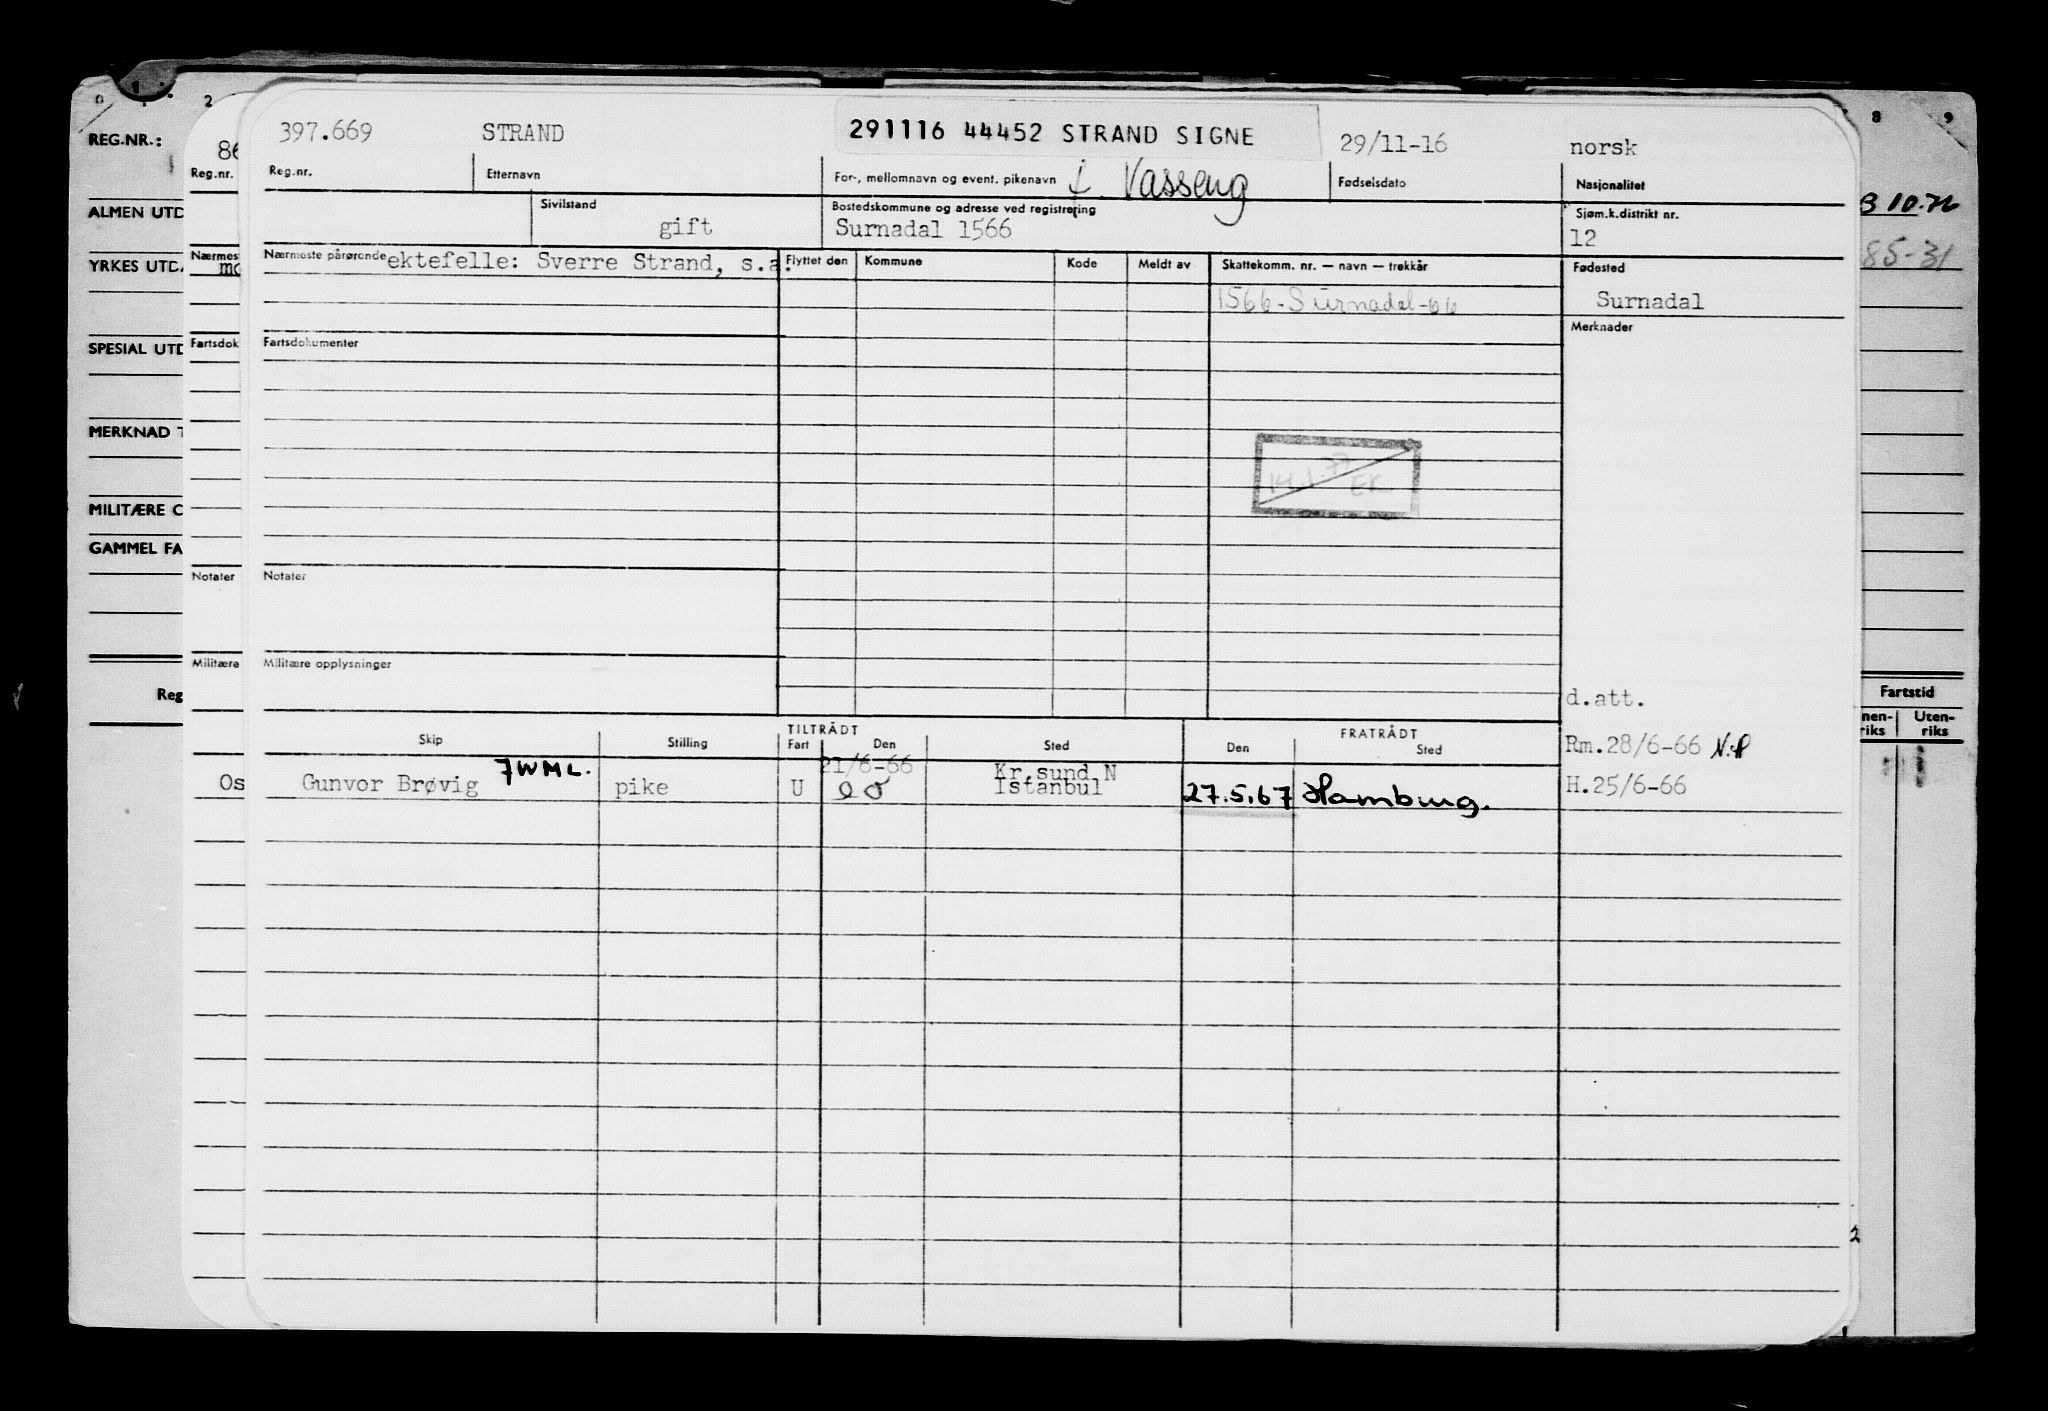 0 1 2 8 9
REG.NR.:
86
Reg.nr.
397.669 STRAND 291116 44452 STRAND SIGNE 29/11-16 norsk
Reg.nr. Etternavn For-, mellomnavn og event. pikenavn f. Vasseng Fødselsdato Nasjonalitet
Sivilstand Bostedskommune og adresse ved registrering Sjøm.k.distrikt nr.
gift Surnadal 1566 12
Nærmeste pårørende ektefelle: Sverre Strand, s.a. Flyttet den Kommune Kode Meldt av Skattekomm. nr. — navn — trekkår Fødested
1566-Surnadal-66 Surnadal
Fartsdokumenter Merknader
14.1.77
EK
Notater
Militære opplysninger
d.att.
Skip Stilling TILTRÅDT FRATRÅDT
Fart Den Sted Den Sted
Rm.28/6-66
21/6-66 Kr.sund N
Gunvor Brøvig JWML. pike U Istanbul 27.5.67 Hamburg. H.25/6-66
ALMEN UTD
YRKES UTDA
SPESIAL UTD
MERKNAD T
MILITÆRE O
GAMMEL FA
Reg
Nærmest
mo
Fartsdok
Notater
Militære
Os
B 10.76
85-31
Fartstid
nen-
riks
Uten-
riks
2